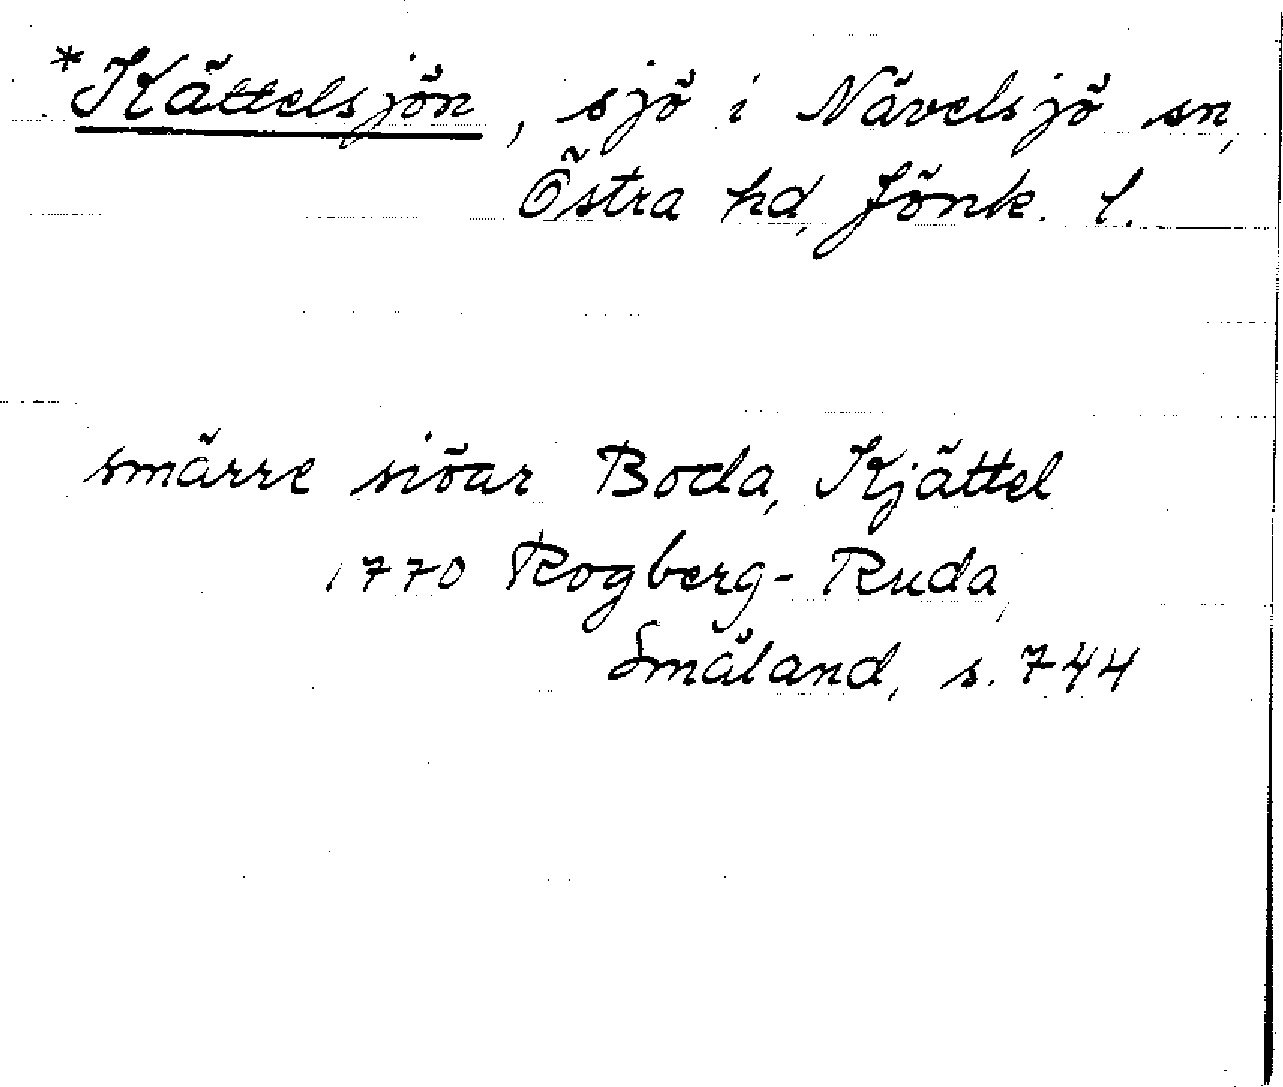 *Kättelsjön, sjö i Nävelsjö sn,
Östra hd, Jönk. l.
smärre siöar Boda, Kjättel
1770 Rogberg-Ruda,
Småland, s. 744